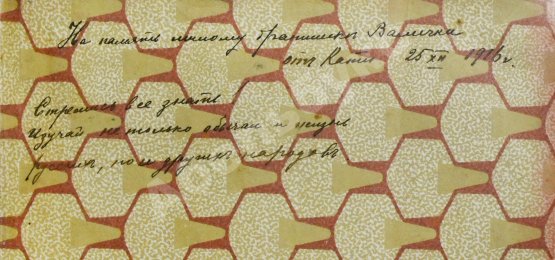 На память милому братишке Валички
от Кати 25 XII 1916 г.
Стремись все знать!
Изучай не только обычаи и жизнь
русских, но и других народовъ